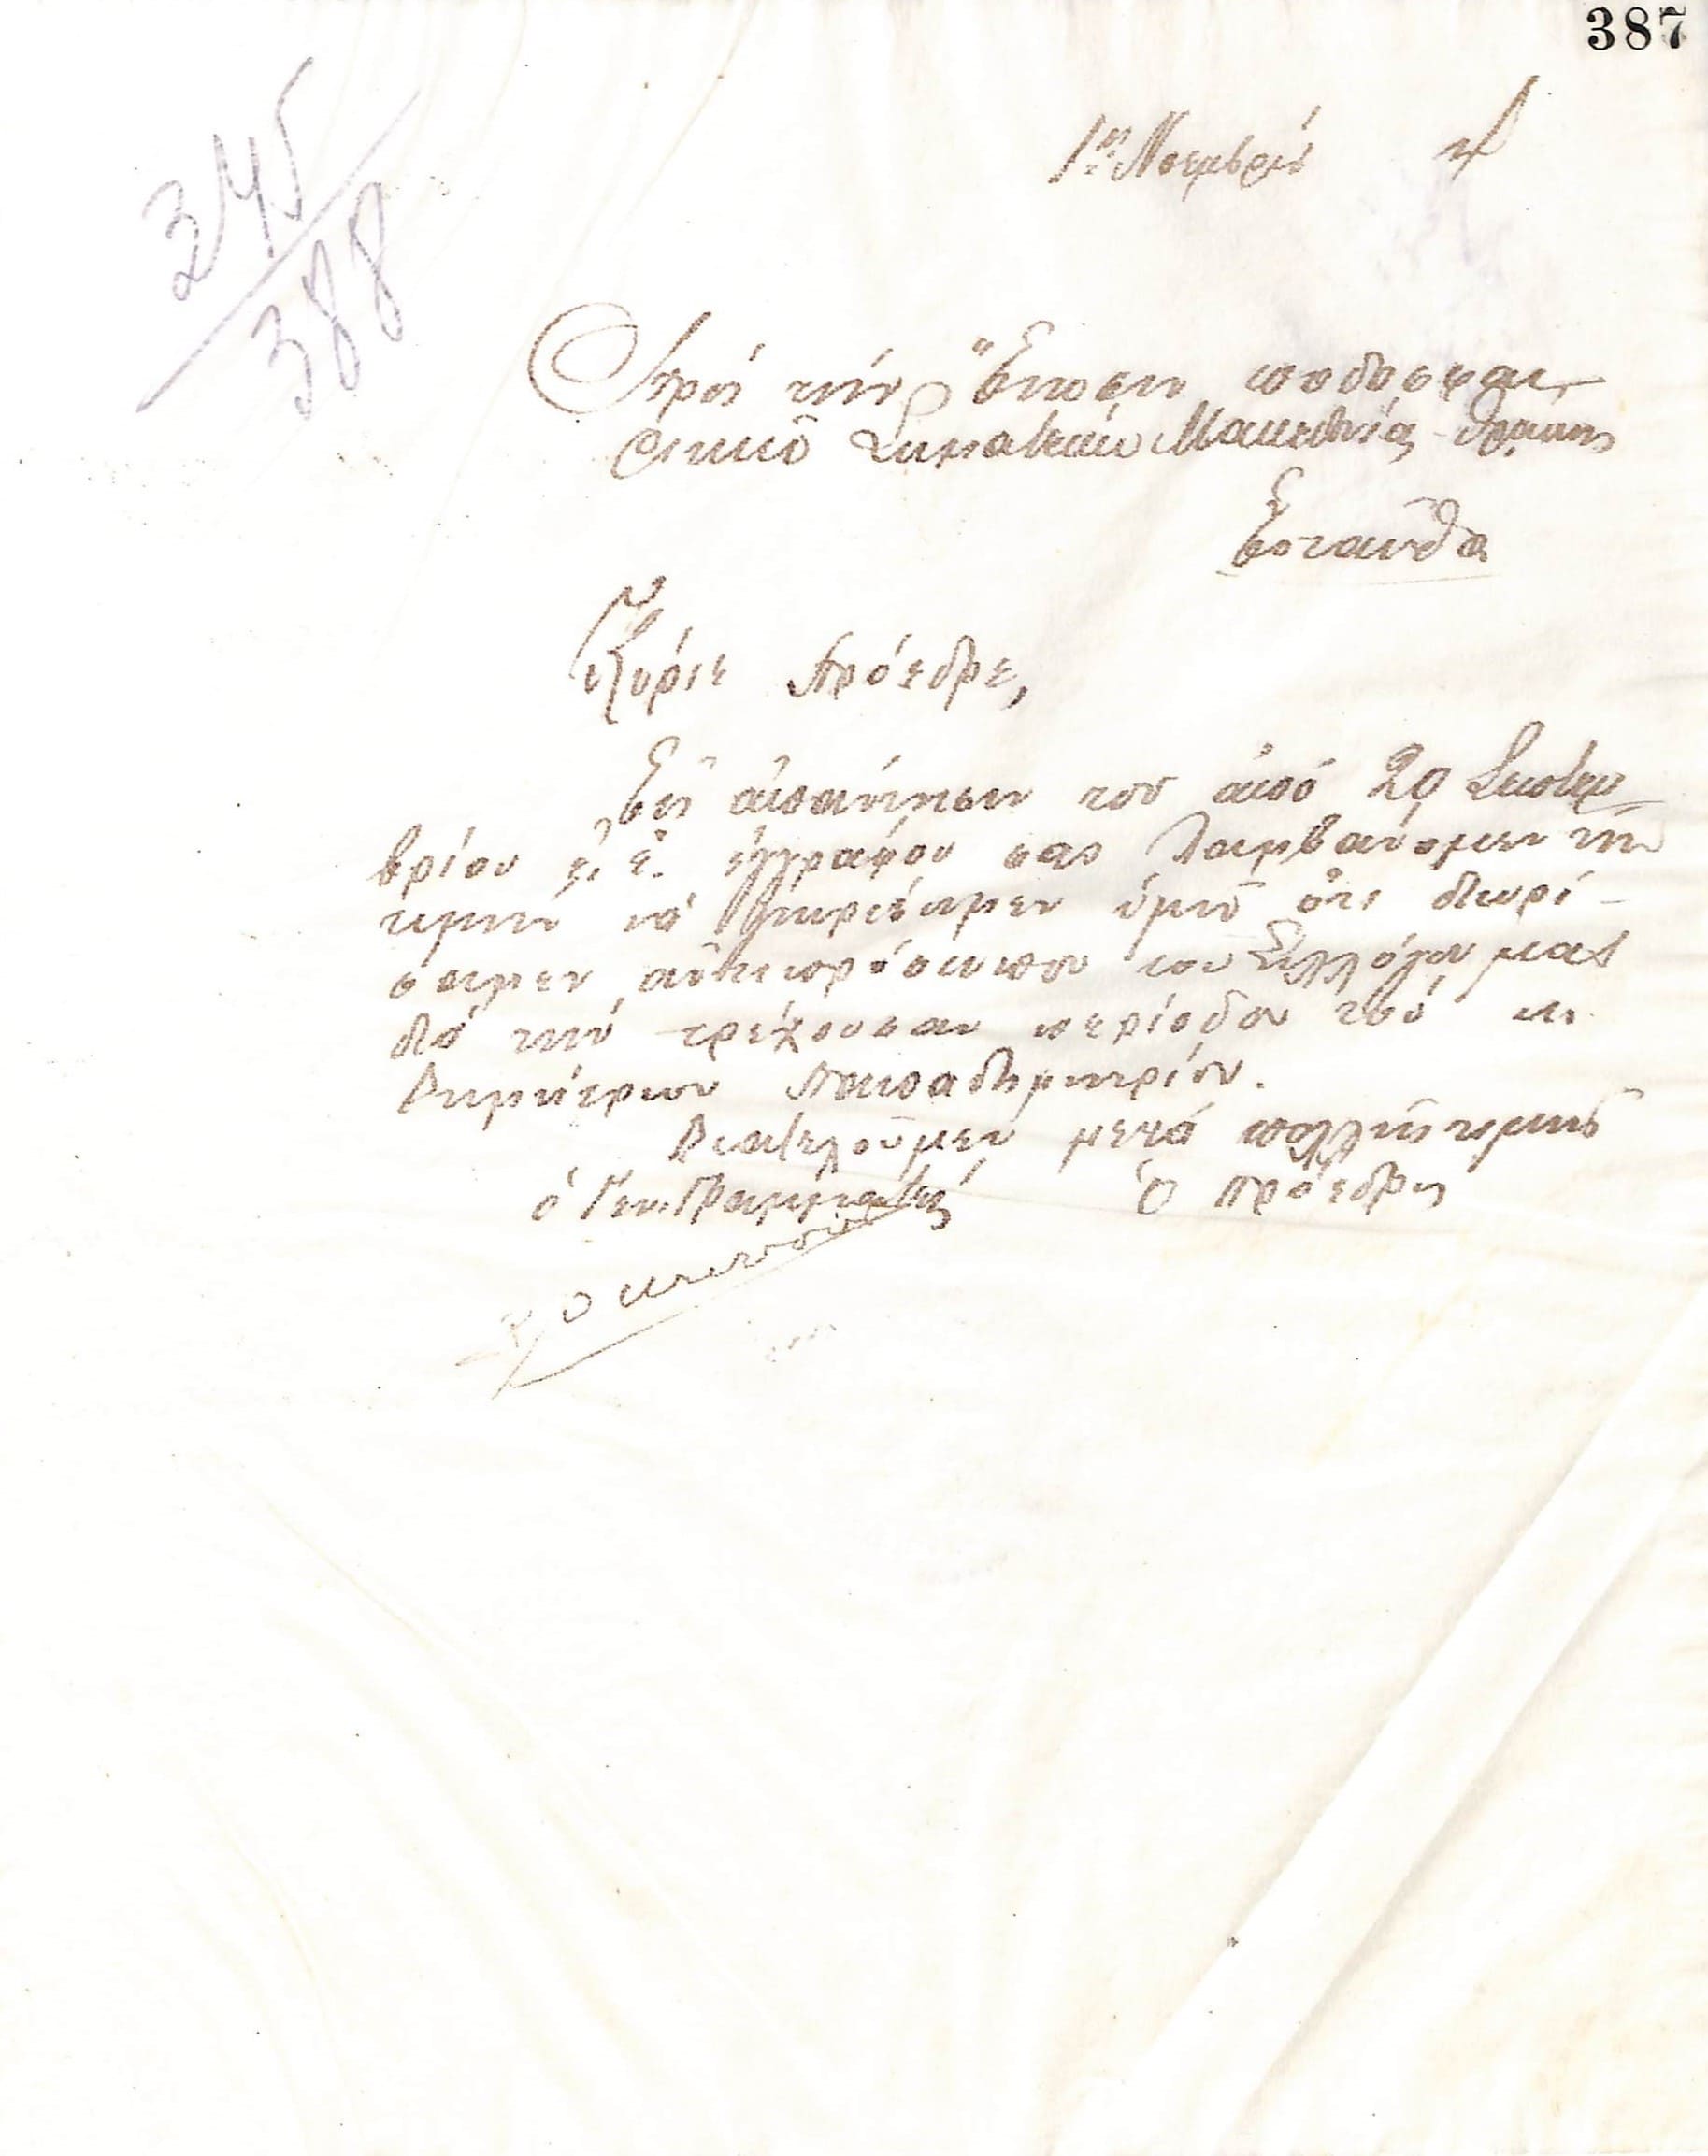 387
345
388
1η Νοεμβρίου 24
Πρός τήν Ἕνωσιν ποδοσφαι-
ρικῶν Σωματείων Μακεδονίας-Θράκης
Ἐνταῦθα
Κύριε Πρόεδρε,
Εἰς ἀπάντησιν τοῦ ἀπό 29 Σεπτεμ
βρίου ἐ. ἔ. ἐγγράφου σας λαμβάνομεν τήν
τιμήν νά γνωρίσωμεν ὑμῖν ὅτι διωρί-
σαμεν ἀντιπρόσωπον τοῦ Συλλόγου μας
διά τήν τρέχουσαν περίοδον τόν κ.
Δημήτριον Παπαδημητρίου.
Διατελοῦμεν μετά πολλῆς τιμῆς
ὁ Γεν. Γραμματεύς Ὁ Πρόεδρος